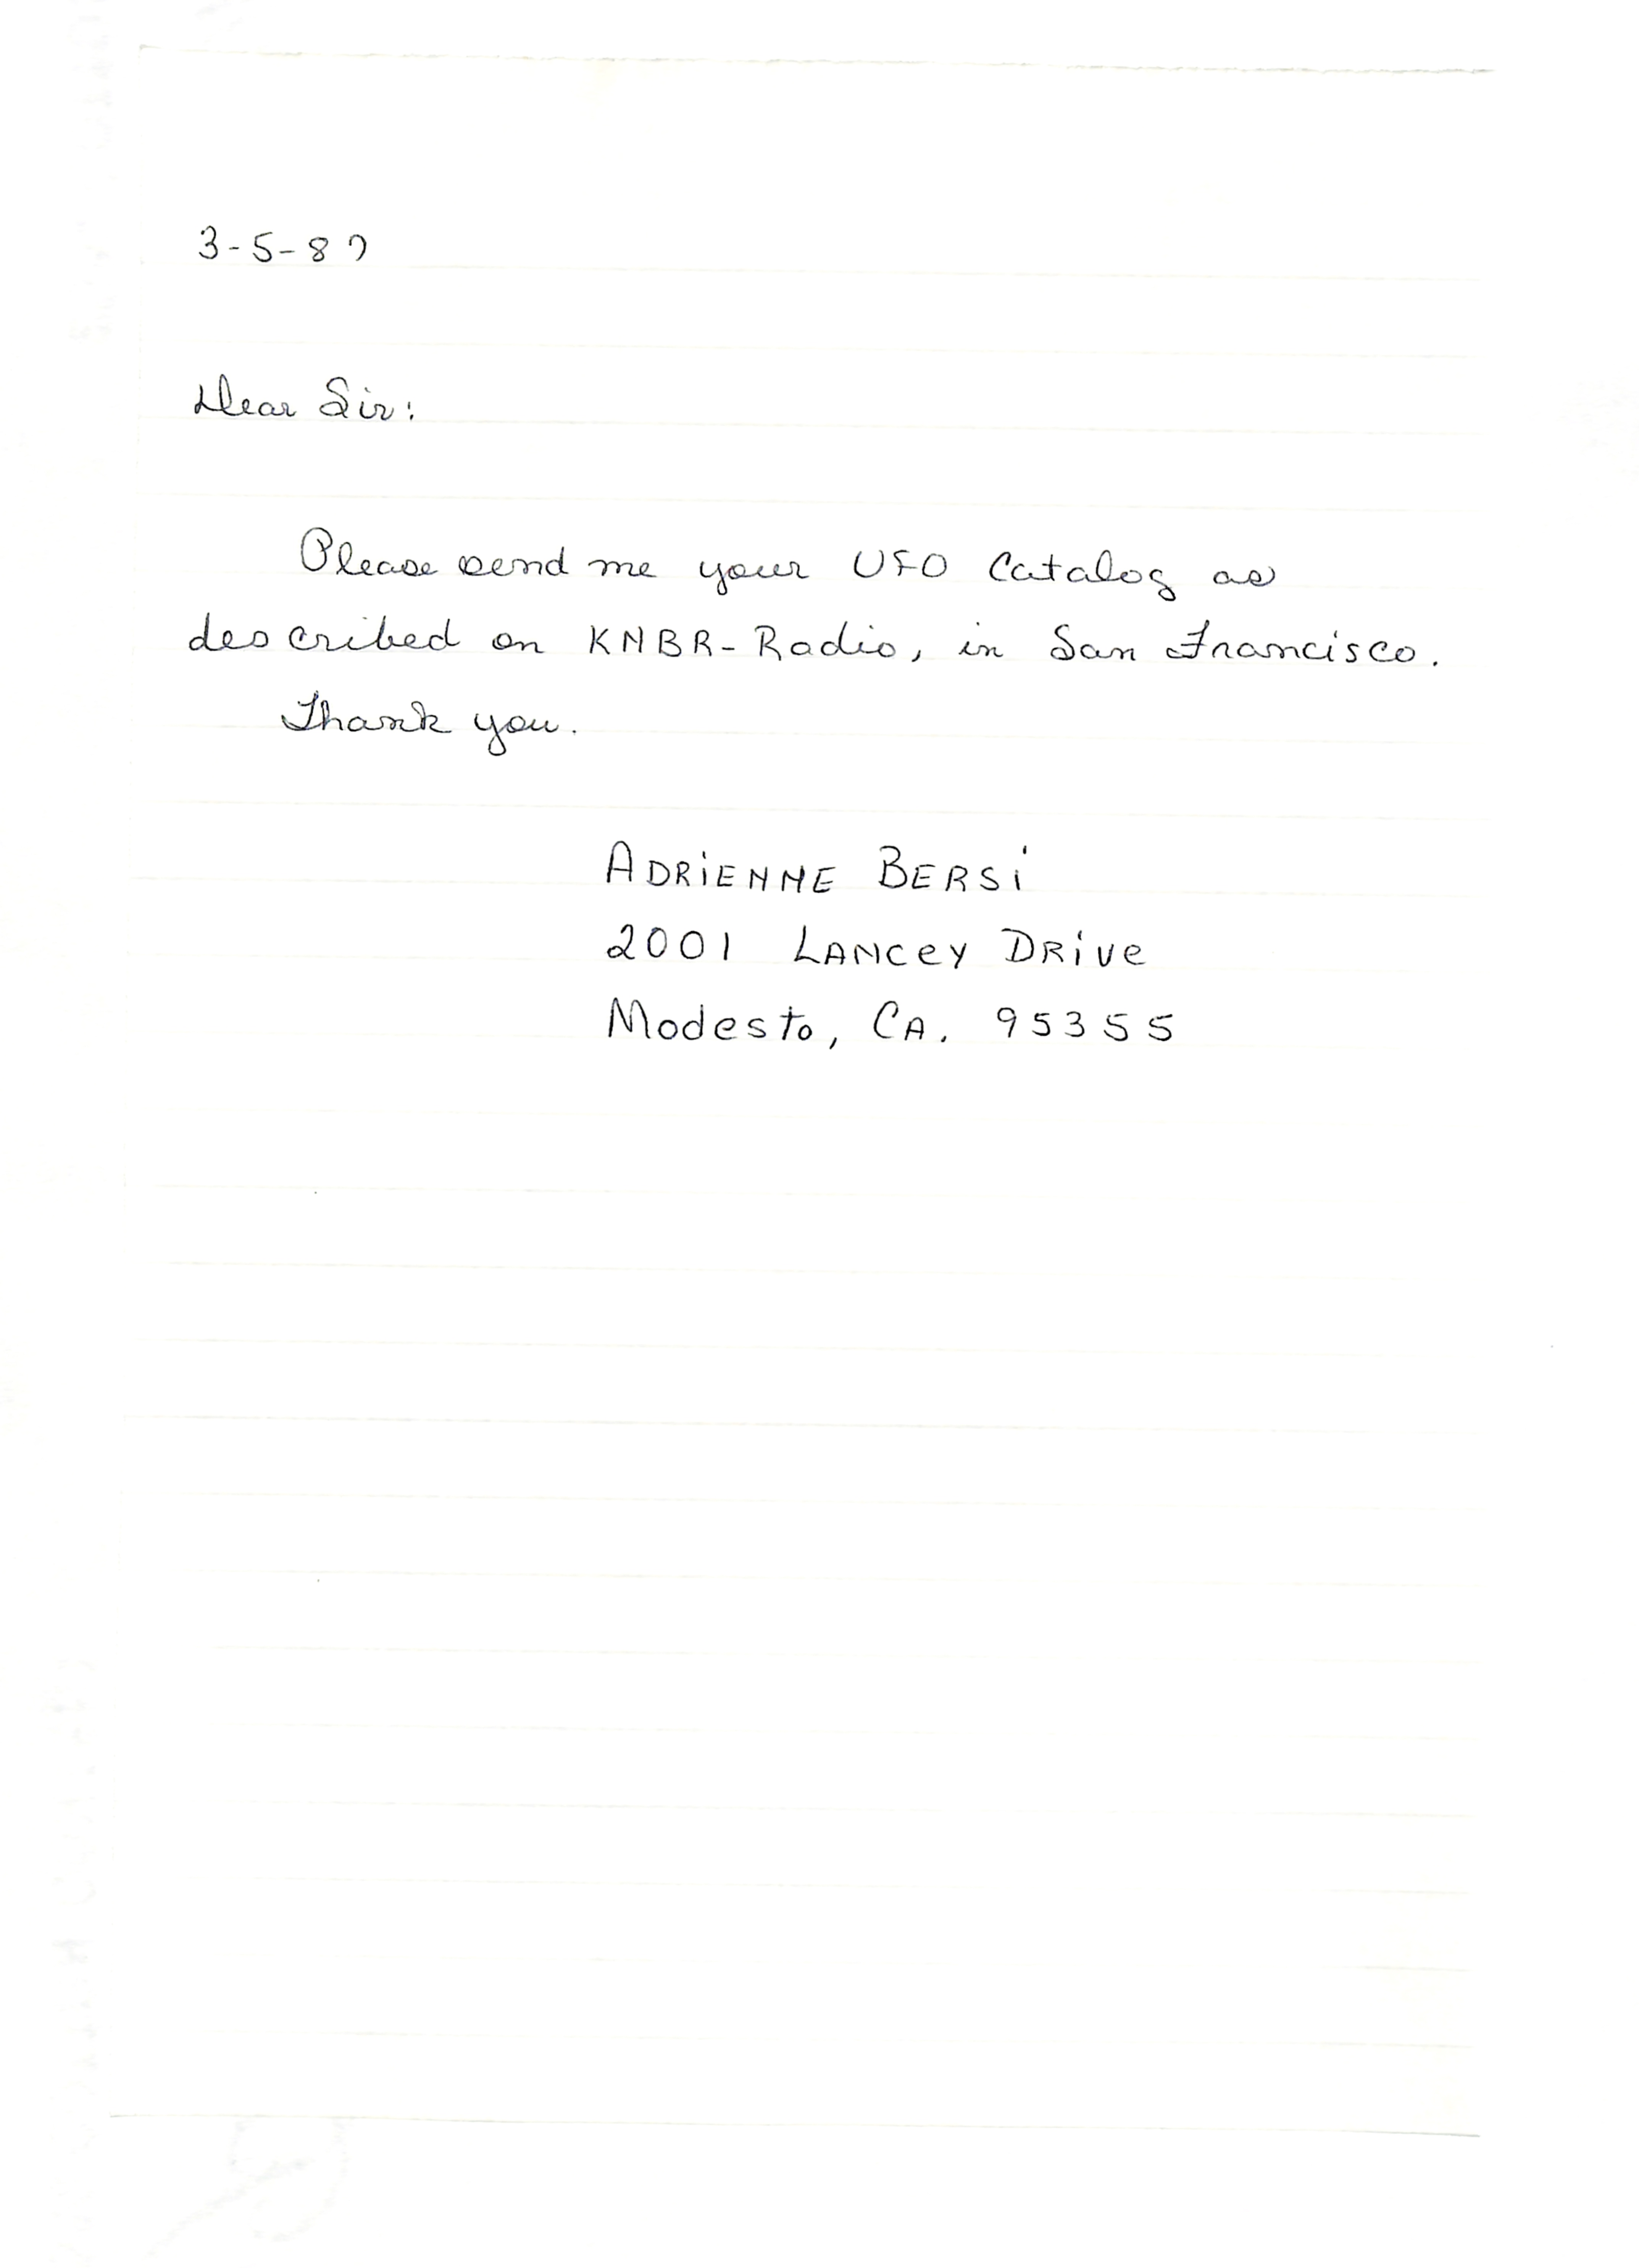 3-5-87
Dear Sir:
Please send me your UFO Catalog as
described on KNBR-Radio, in San Francisco.
Thank you.
ADRiENNE BERSi
2001 LANCEY DRive
Modesto, CA. 95355